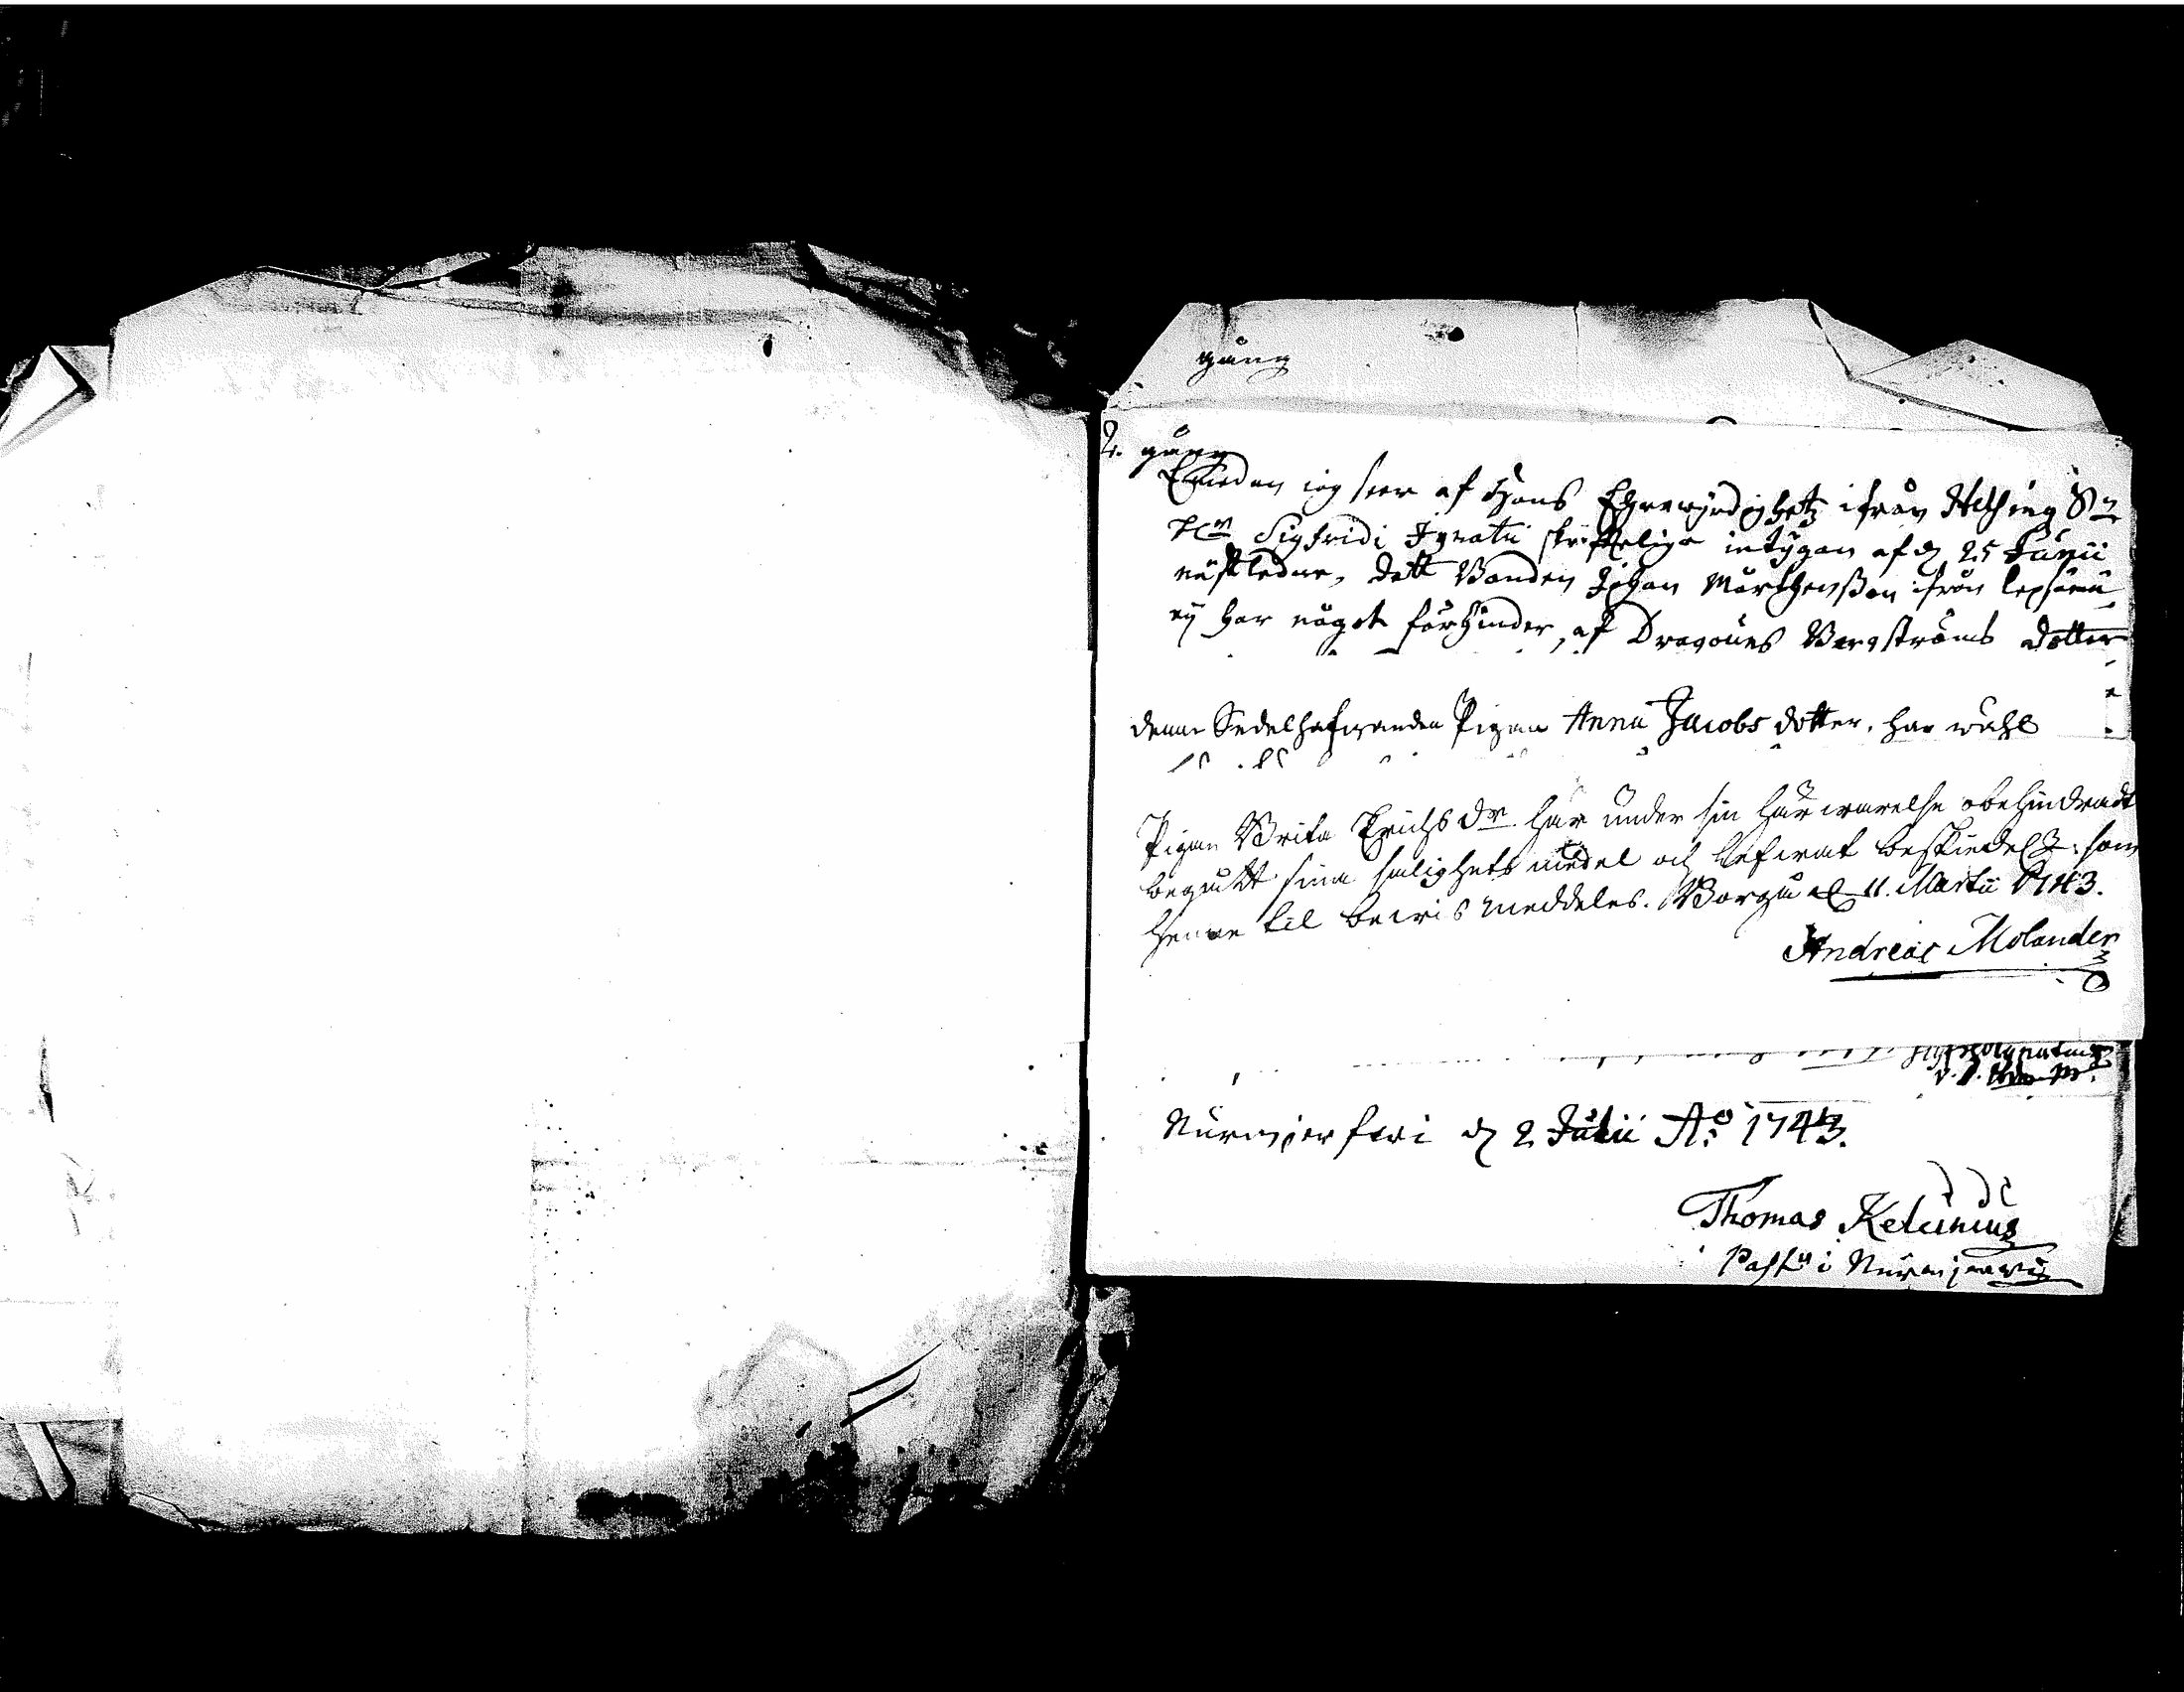 gång
2. gång
Emedan iag seer af Hans Ehrewyrdighetz ifrån Helsing Sn
Hr Sigfridi Ignatii skrifftelige intygan af d 25 Junii
nästledne, dett Bonden Johan Mårthensßon ifrån Lepsämä
eij har något förhinder, af Dragouns Bergströms dotter
denne Sedelhafwande Pigan Anna Jacobs dotter, har wähl
Pigan Brita Erichs dr har under sin härwarelse obehindradt
begått sina salighets medel och lefwat beskiedel: som
henne til bewis meddeles. Borgå d 11. Martii 1743.
Andreas Molander
Nurmjerfwi d 2 Julii Ao 1743.
Thomas Keleunius
Past i Nurmjerwi